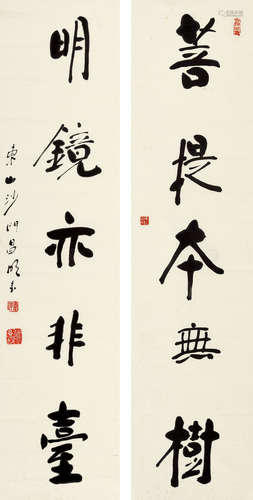 菩提本無樹
明鏡亦非臺
東山沙門昌明書